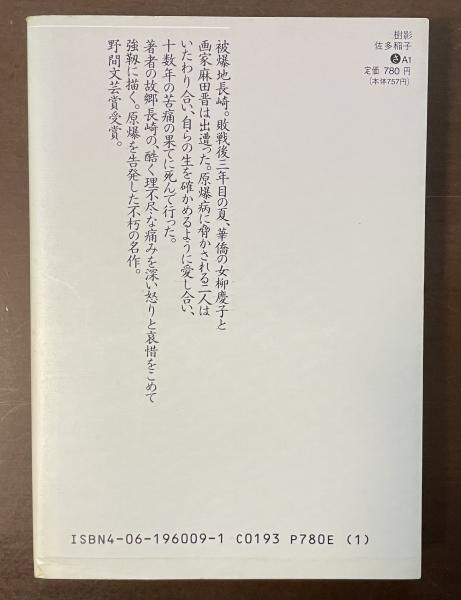 樹影
佐多稲子
さA1
定価 780 円
(本体757円)
被爆地長崎。敗戦後三年目の夏、華僑の女柳慶子と
画家麻田晋は出遭った。原爆病に脅かされる二人は
いたわり合い、自らの生を確かめるように愛し合い、
十数年の苦痛の果てに死んで行った。
著者の故郷長崎の、酷く理不尽な痛みを深い怒りと哀惜をこめて
強靱に描く。原爆を告発した不朽の名作。
野間文芸賞受賞。
ISBN4-06-196009-1 C0193 P780E (1)